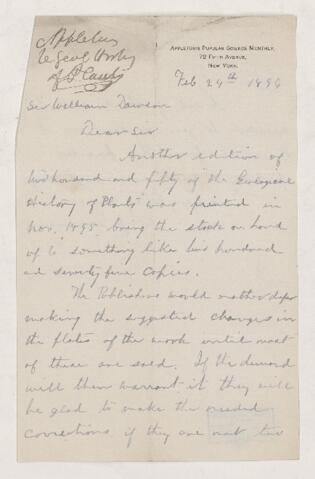 Appletons
re Geol History
of Plants
APPLETONS' POPULAR SCIENCE MONTHLY,
72 FIFTH AVENUE,
NEW YORK.
Feb 24th 1896
Sir William Dawson
Dear Sir
Another edition of
two hundred and fifty of the Geological
History of Plants was printed in
Nov. 1895, bring the stock on hand
up to something like two hundred
and seventy five copies.
The Publishers would rather defer
making the suggested changes in
the plates of the work until most
of these are sold. If the demand
will then warrant it they will
be glad to make the needed
corrections if they are not too